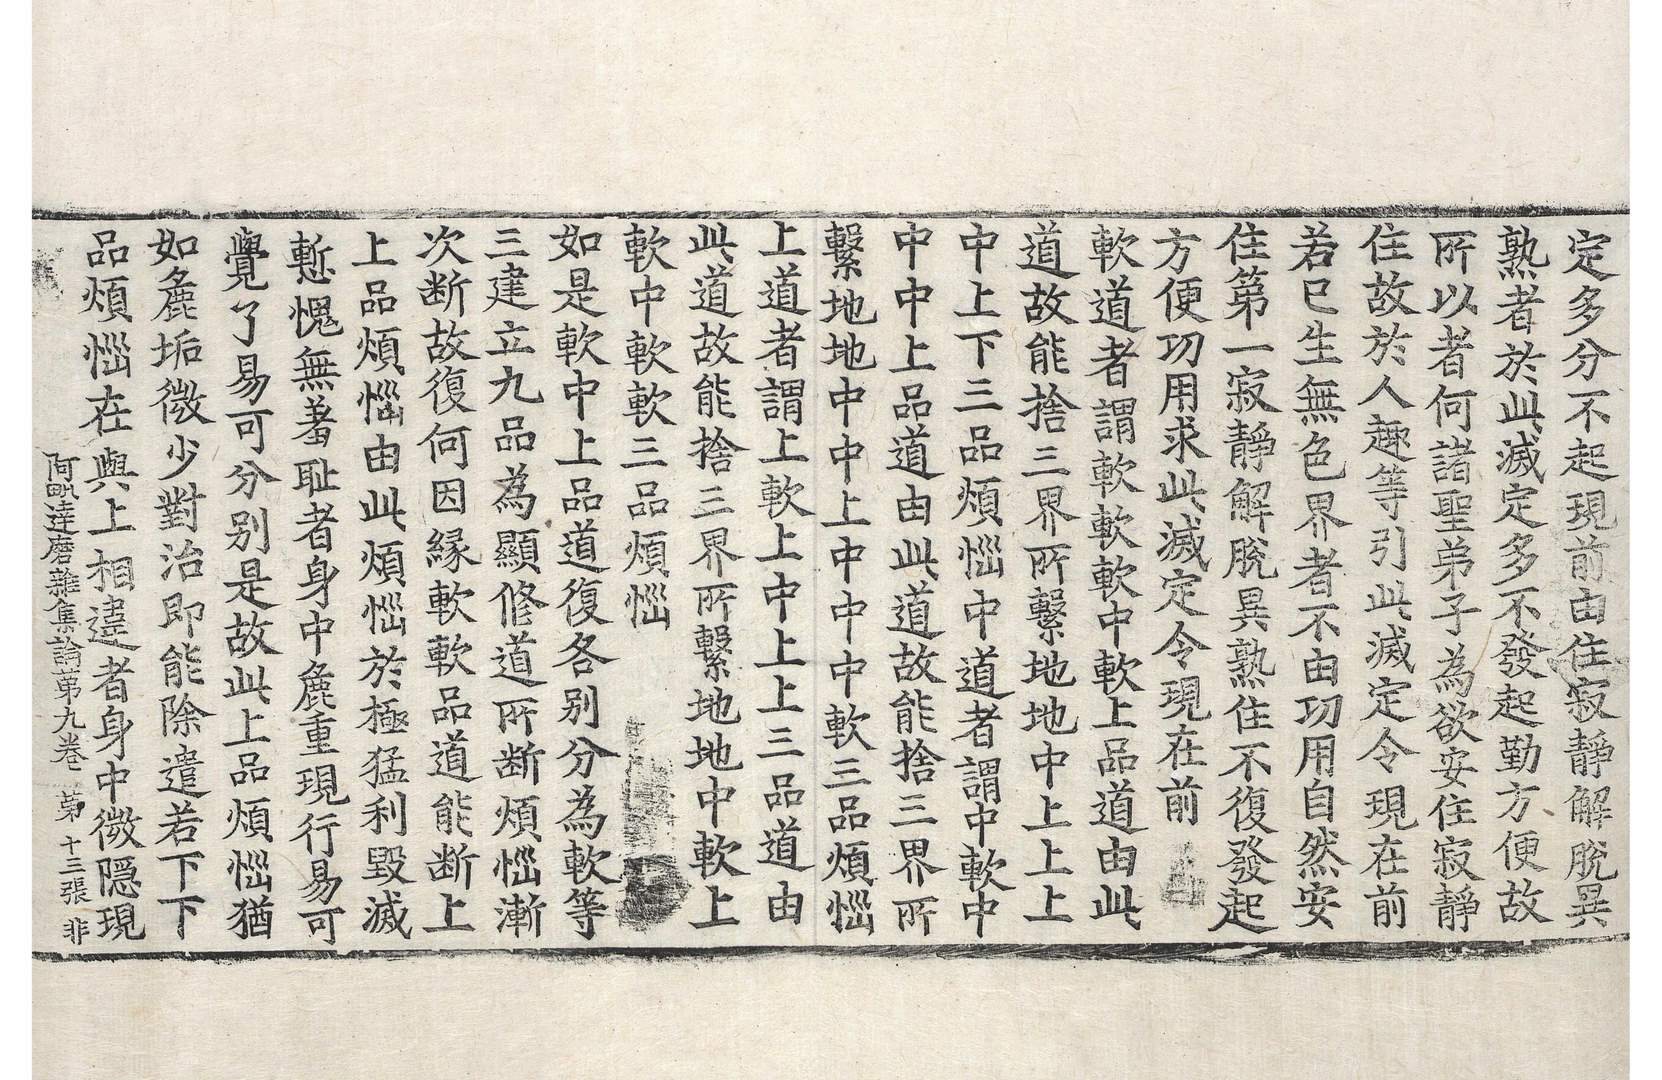 定多分不起現前由住寂靜解脫異
熟者於此滅定多不發起勤方便故
所以者何諸聖弟子為欲安住寂靜
住故於人趣等引此滅定令現在前
若已生無色界者不由功用自然安
住第一寂靜解脫異熟住不復發起
方便功用求此滅定令現在前
軟道者謂軟軟軟中軟上品道由此
道故能捨三界所繫地地中上上上
中上下三品煩惱中道者謂中軟中
中中上品道由此道故能捨三界所
繫地地中中上中中中軟三品煩惱
上道者謂上軟上中上上三品道由
此道故能捨三界所繫地地中軟上
軟中軟軟三品煩惱
如是軟中上品道復各別分為軟等
三建立九品為顯修道所断煩惱漸
次断故復何因緣軟軟品道能断上
上品煩惱由此煩惱於極猛利毀滅
慙愧無羞耻者身中麁重現行易可
覺了易可分別是故此上品煩惱猶
如麁垢微少對治即能除遣若下下
品煩惱在與上相違者身中微隱現
阿毗達磨雜集論第九卷 第十三張 非